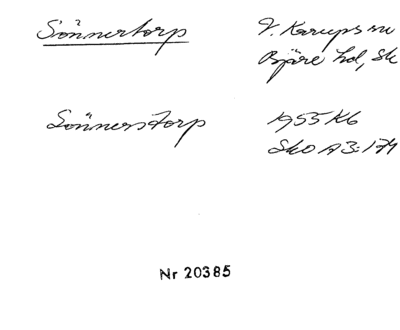 Sönnertorp
V. Karups sn
Bjäre hd, Sk
Sönnerstorp
1955 Kb
Sko A3:171
Nr 20385